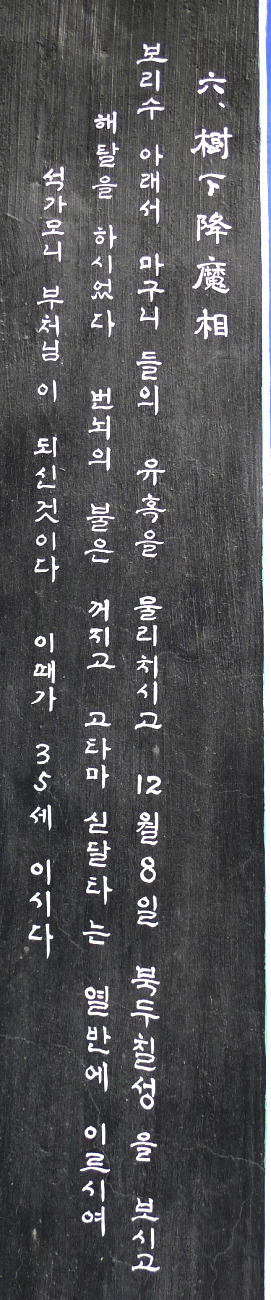 六、樹下降魔相
보리수 아래서 마구니 들의 유혹을 물리치시고 12월8일 북두칠성을 보시고
해탈을 하시었다 번뇌의 불은 꺼지고 고타마 싣달타는 열반에 이르시여
석가모니 부처님이 되신것이다 이때가 35세 이시다